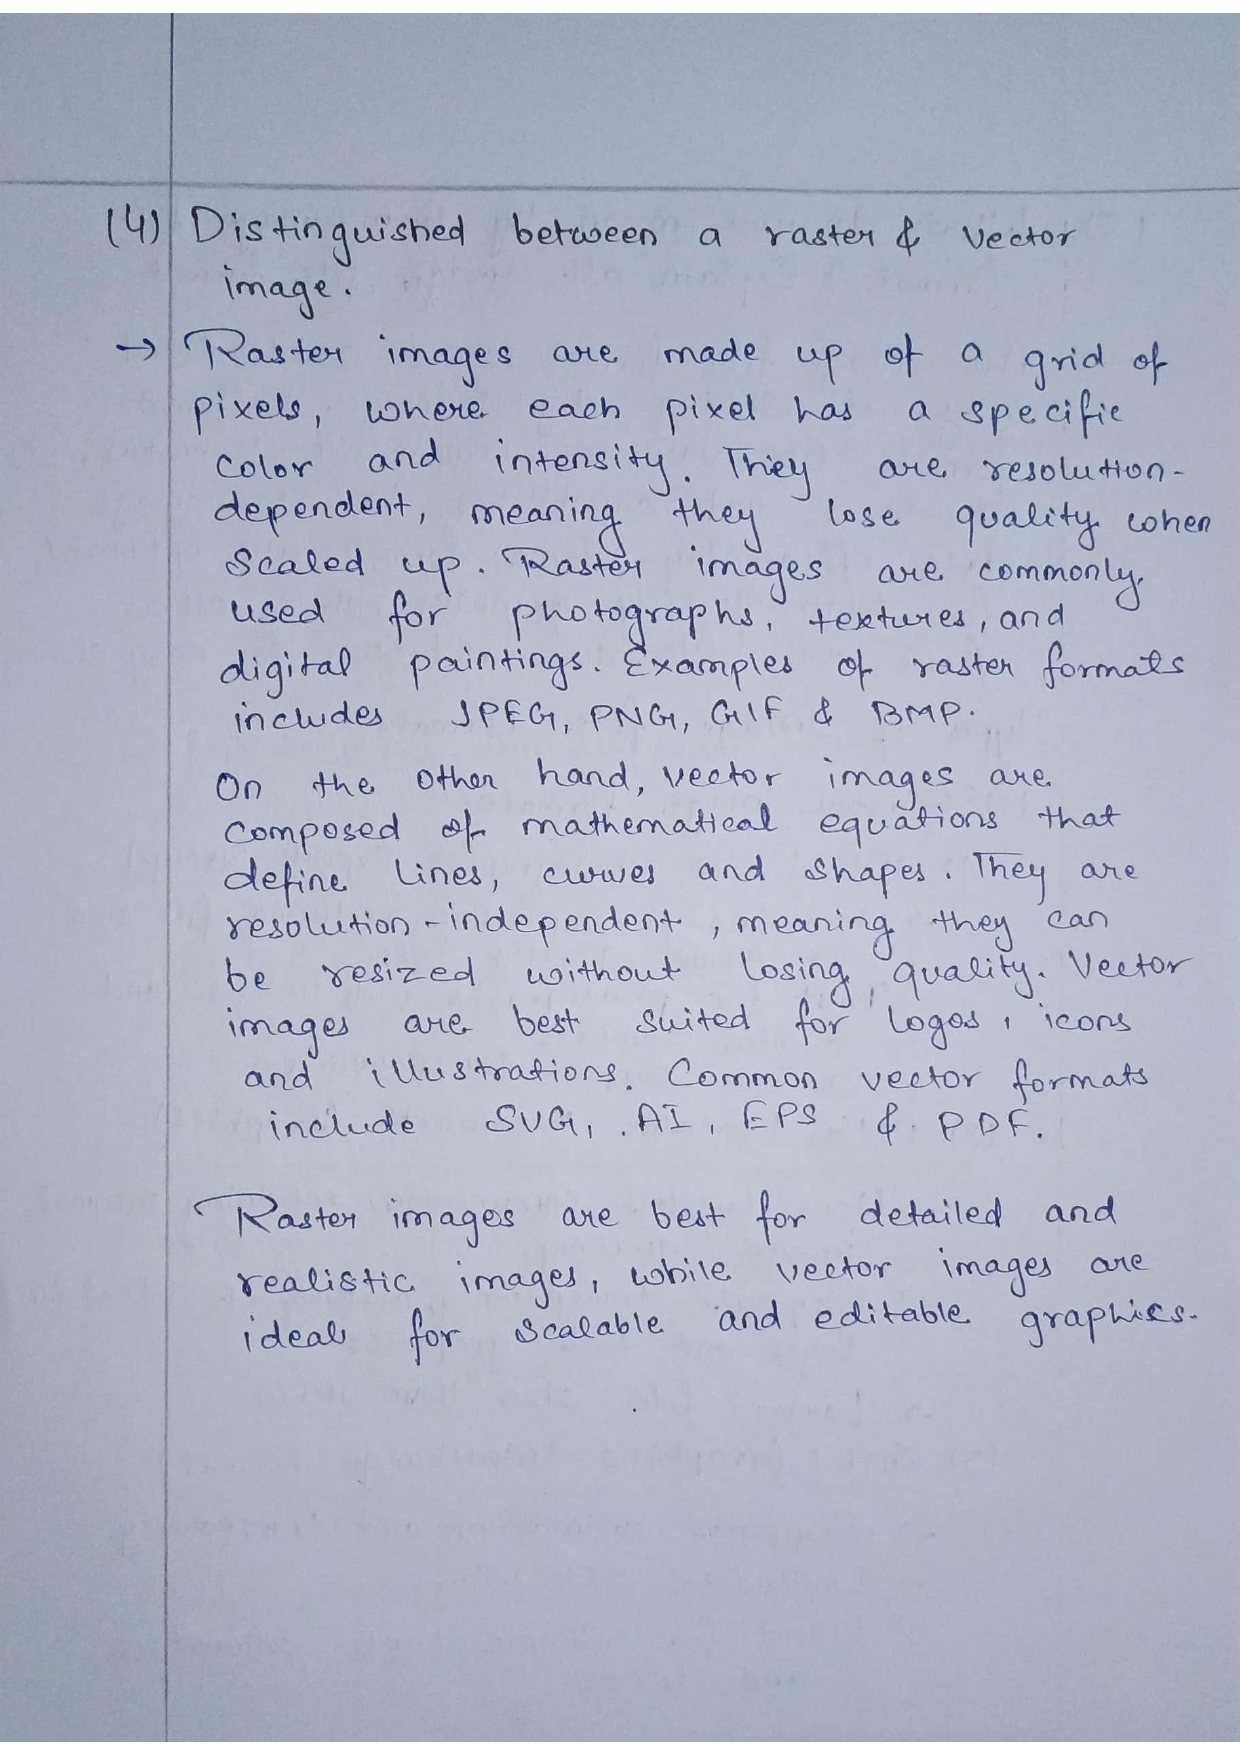 (4) Distinguished between a raster & vector
image.
→ Raster images are made up of a grid of
pixels, where each pixel has a specific
color and intensity. They are resolution-
dependent, meaning they lose quality when
scaled up. Raster images are commonly
used for photographs, textures, and
digital paintings. Examples of raster formats
includes JPEG, PNG, GIF & BMP.
On the other hand, vector images are
composed of mathematical equations that
define lines, curves and shapes. They are
resolution-independent, meaning they can
be resized without losing quality. Vector
images are best suited for logos, icons
and illustrations. Common vector formats
include SVG, AI, EPS & PDF.
Raster images are best for detailed and
realistic images, while vector images are
ideal for scalable and editable graphics.